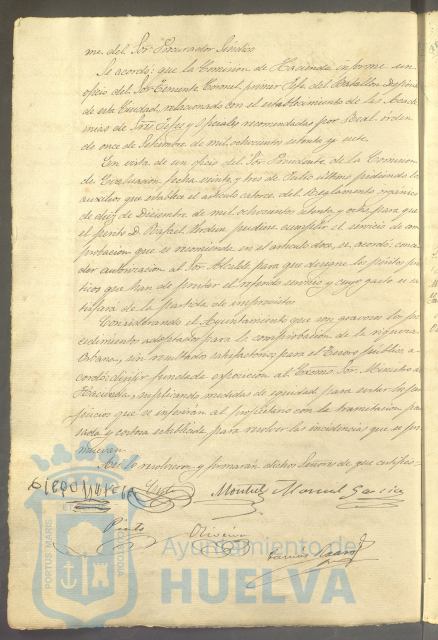 me del Sor Procurador Síndico
Se acordó: que la Comision de Hacienda informe un
oficio del Sor Teniente Coronel primer Jefe del Batallon
de esta Ciudad, relacionado con el establecimiento de las Acade
mias de Sres Jefes y Oficiales recomendadas por Real orden
de once de Setiembre de mil ochocientos setenta y siete.
En vista de un oficio del Sor Presidente de la Comision
de Evaluacion fecha veinte y tres de Julio último pidiendo los
auxilios que establece el artículo catorce del Reglamento orgánico
de diez de Diciembre de mil ochocientos setenta y ocho, para que
el perito D. Rafael pudiese cumplir el servicio de com
probacion que se encomienda en el artículo doce, se acordó: conce
der autorizacion al Sor Alcalde para que designe los peritos prác
ticos que han de prestar el referido servicio y cuyo gasto se sa
tisfará de la partida de imprevistos.
Considerando el Ayuntamiento que son gravosos los pro
cedimientos adoptados para la comprobacion de la riqueza
Urbana, sin resultados satisfactorios para el Tesoro público, a
cordó: dirijir fundada exposicion al Excmo Sor Ministro de
Hacienda, suplicando medidas de equidad para evitar los per
juicios que se inferirán al propietario con la tramitacion pe
sada y costosa establecida para resolver las incidencias que se pro
muevan.
Así lo resolvieron y firmarán dichos Señores de que certifico.
Montiel Manuel Garcia
Pinto Oliveira
PORTUS MARIS ET TERRAE CUSTODIA
Ayuntamiento de
HUELVA